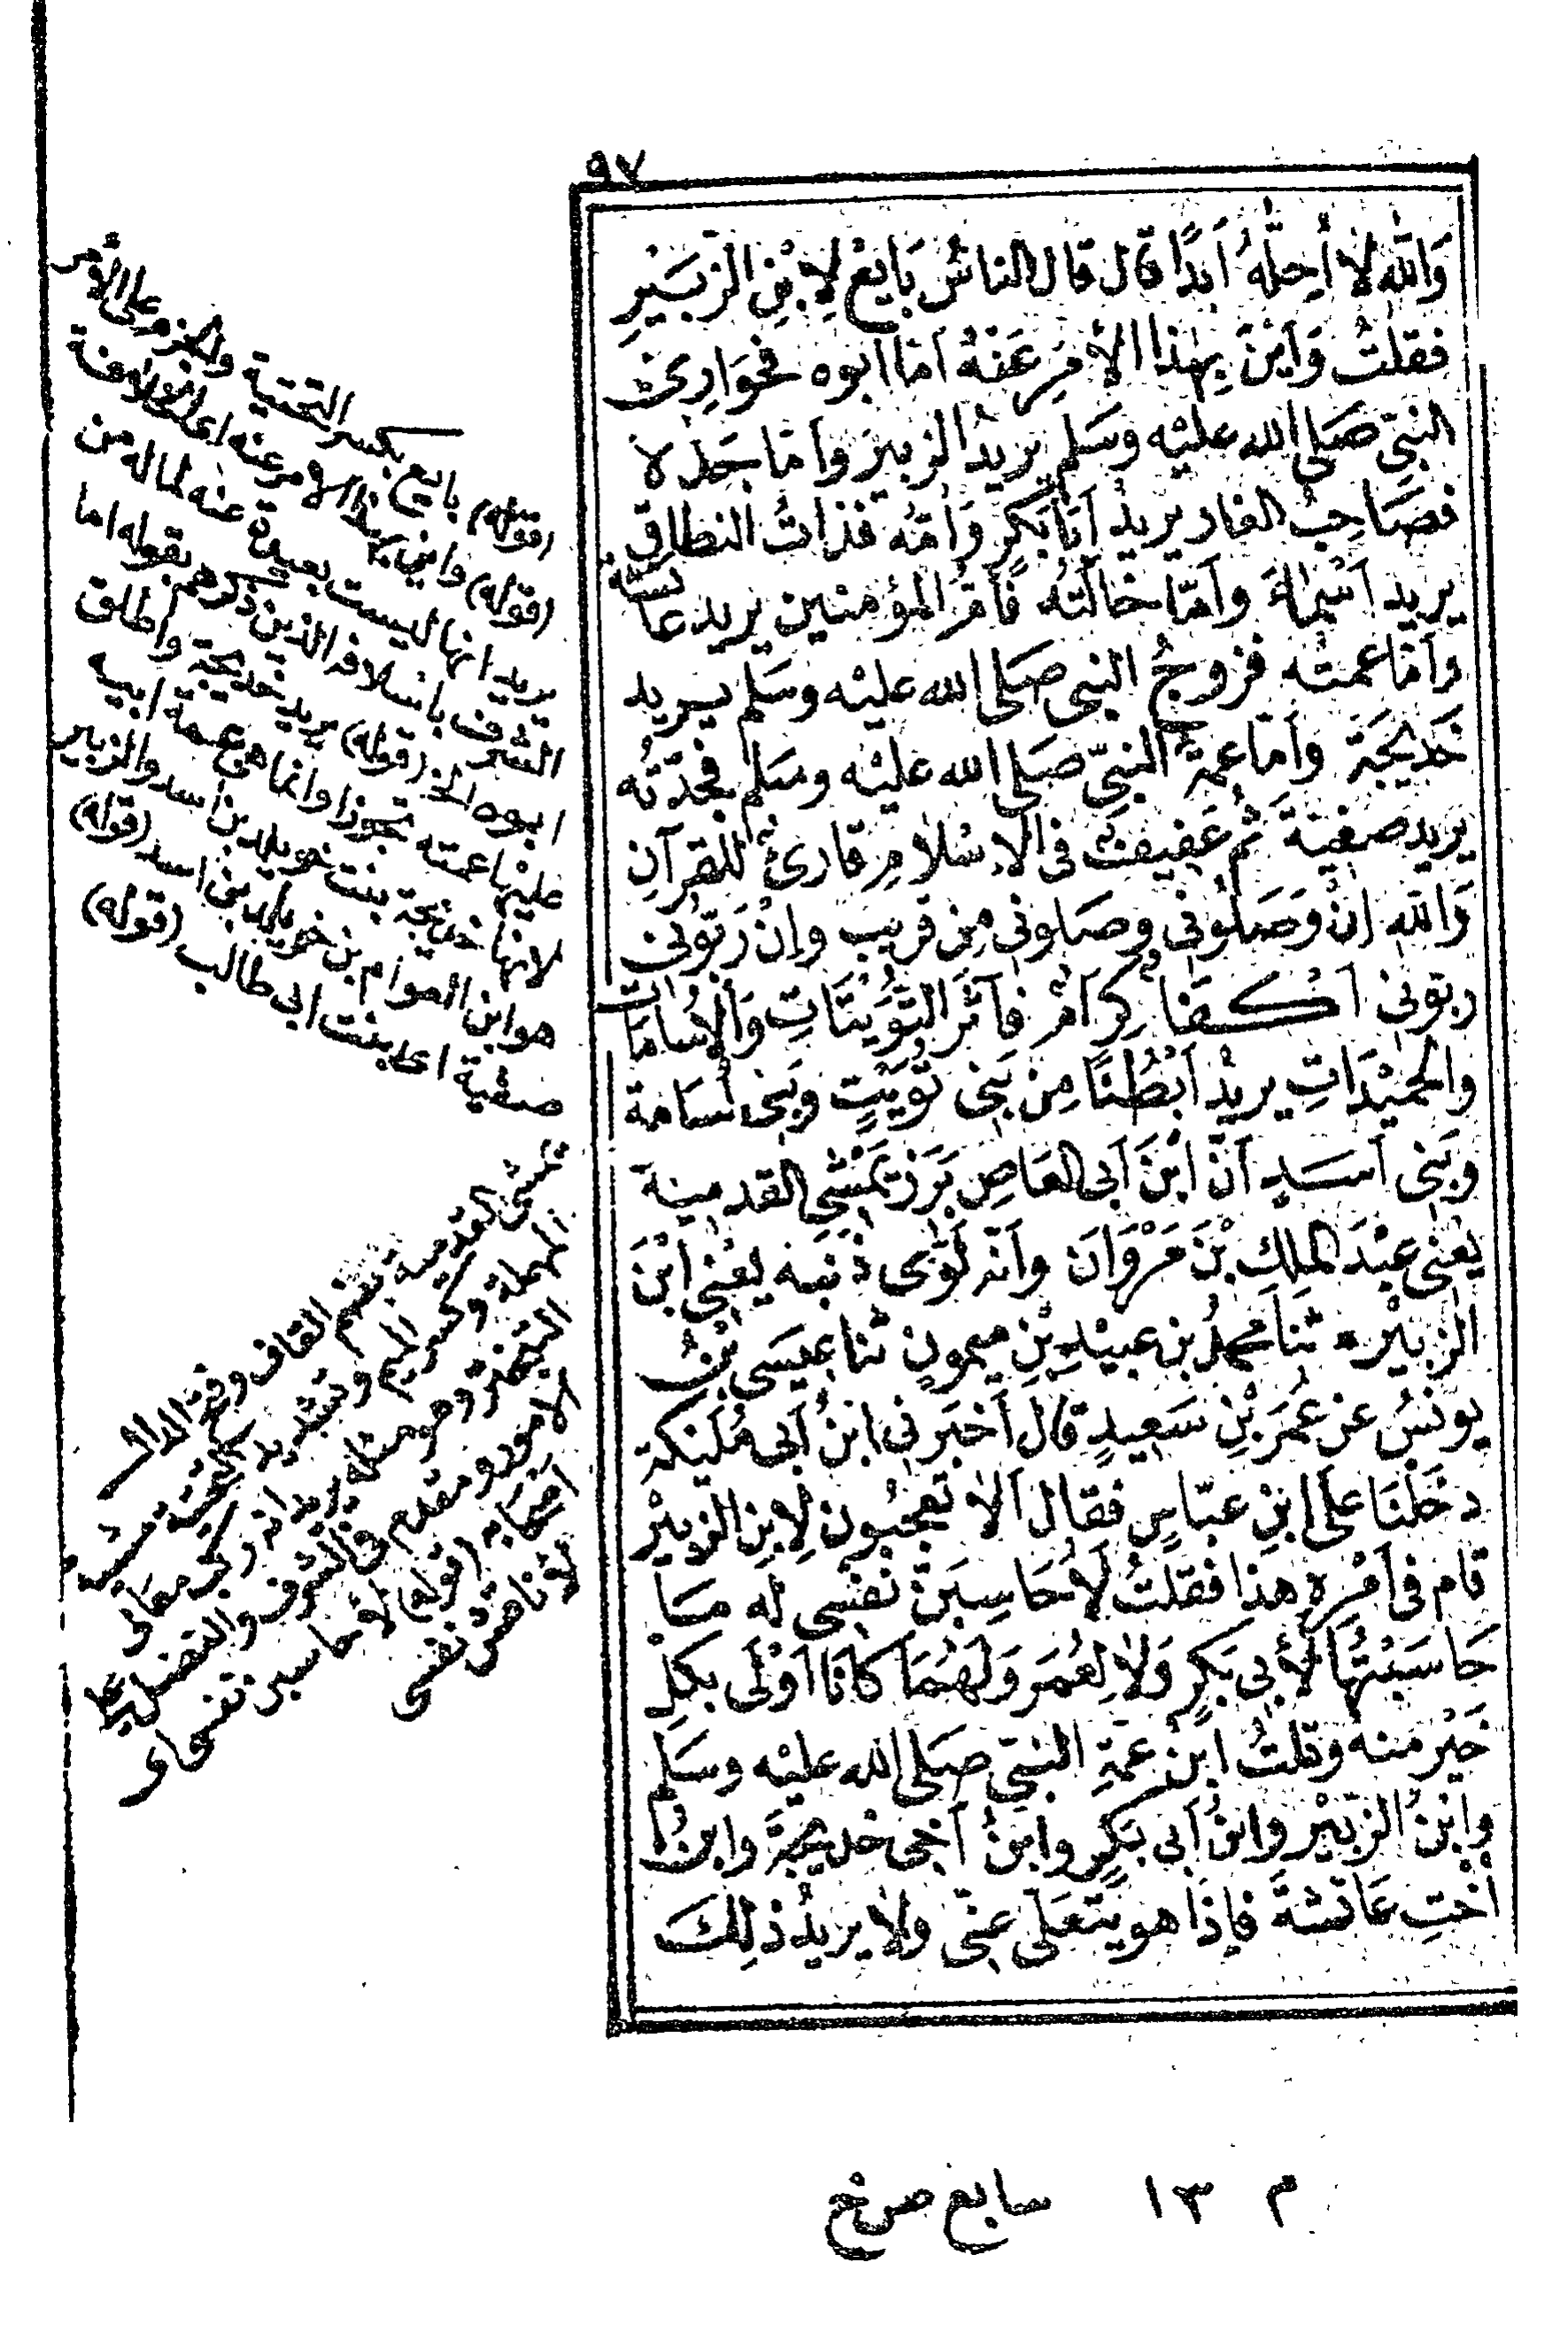 ٩٧
وَاللهِ لا أُحِلُّهُ اَبَدًا قال قال الناسُ بَايِعْ لِابْنِ الزُّبَيْرِ
فقلتُ وَاَيْنَ بِهٰذا الأَمْرِ عَنْهُ اَمَّا اَبوه فَحَوَارِىُّ
النبىِّ صَلى الله عليْه وسَلم يريدُ الزبيرَ واَمّا جَدّه
فصَاحِبُ الغار يريدُ اَبَا بَكرٍ وَاُمُّه فذاتُ النطاقِ
يريد اَسْمَاءَ واَمّا خالَتُه فأمُّ المؤمنين يريد عائشةَ
واَمّا عمتُه فزوجُ النبى صَلى الله عليْه وسَلم يريد
خَدِيْجَةَ واَمّا عمةُ النبىِّ صَلى الله عليْه وسَلم فجَدّتُه
يريد صفيةَ ثُم عَفِيفٌ فى الاِسْلامِ قارِئٌ للقرآنِ
وَاللهِ اِنْ وَصَلُونى وصَلونى مِن قريبٍ وإنْ رَبّونى
ربونى اَكْفَاءٌ كِرَامٌ فآثَرَ التُّوَيْتَاتِ وَالأُسَامَاتِ
والحُمَيْدَاتِ يريدُ اَبْطُنًا مِن بَنى تُوَيْتٍ وبَنى اُسَامةَ
وبَنى اَسَدٍ اَنَّ ابْنَ اَبى العَاصِ بَرَزَ يَمْشِى القدميةَ
يعْنى عبْدَ المَلِكِ بْنَ مَرْوَانَ واَنّه لَوّى ذنبه يعْنى ابْنَ
الزبيْرِ ثنا محمدُ بن عبيْدِ بْنِ ميمونٍ ثنا عيسَى بْنُ
يونسُ عن عُمَرَ بْنِ سَعِيدٍ قال اَخبَرنى ابنُ اَبى مُلَيْكةَ
دخَلنَا على ابنِ عبّاسٍ فقال اَلا تعجبُون لِابنِ الزبيْرِ
قام فى اَمْرِه هذا فقلتُ لَاُحَاسِبَنَّ نفسى له مَا
حَاسَبْتُهَا لأَبى بَكرٍ وَلا لِعُمَرَ وَلَهُمَا كانَا اَوْلَى بكلِّ
خَيْرٍ منه وقلتُ ابنُ عمّةِ النبىِّ صَلى الله عليْه وسَلم
وابْنُ الزّبيْرِ وابنُ اَبى بَكرٍ وابنُ اَخى خديجةَ وابنُ
اُختِ عَائشةَ فإذا هو يتَعَلّى عنّى ولا يريدُ ذلِكَ
(قوله) بايع بكسر التحتية والجزم على الأمر
(قوله) واين بهذا الامر عنه اى الخلافة
يريد انها ليست بعيدة عنه لما له من
الشرف باسلافه الذين ذكرهم بقوله اما
ابوه الخ (قوله) يريد خديجة واطلق
عليها عمته تجوزا وانما هى عمة ابيه
لانها خديجة بنت خويلد بن اسد والزبير
هو ابن العوام بن خويلد بن اسد (قوله)
صفية اى بنت ابى طالب (قوله)
تمشى القدمية بضم القاف وفتح الدال
المهملة وكسر الميم وتشديد التحتية مشية
التبختر وهو مثل يريد انه ركب معالى
الامور وتقدم فى الشرف والفضل على
اصحابه (قوله) لاحاسبن نفسى اى
لأناقش نفسى
م ١٣ سابع ص خ